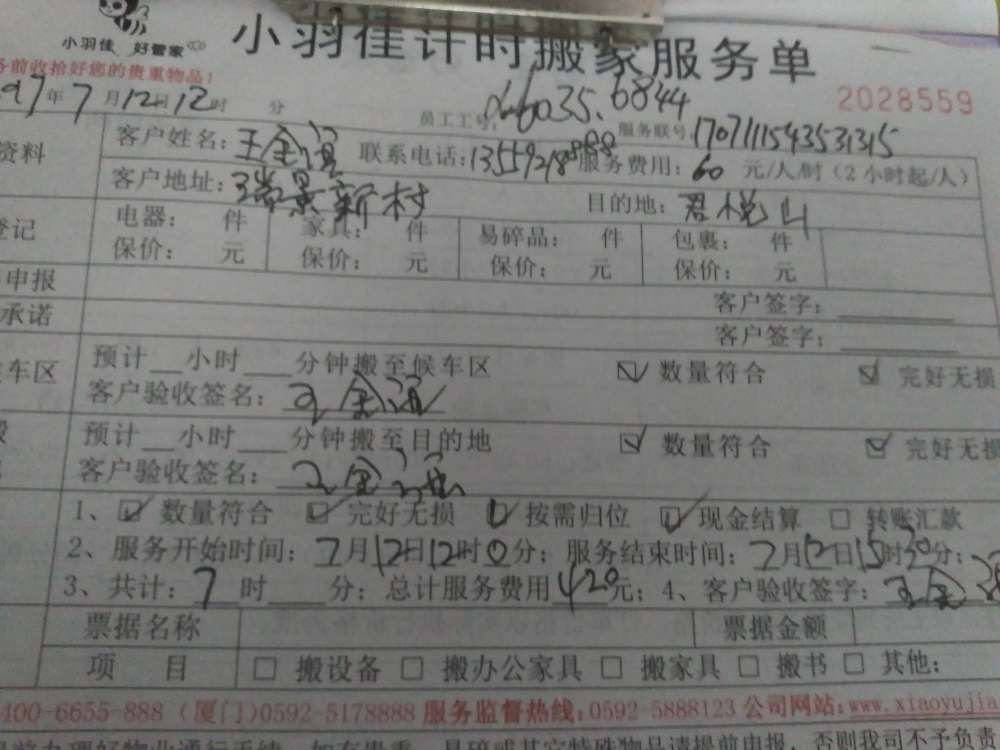 小羽佳 好管家
小羽佳计时搬家服务单
务前收拾好您的贵重物品!
年7月12日12时 分
员工工号: 6035.6844
2028559
服务联号:1707111543531315
资料
客户姓名: 王金 联系电话: 服务费用: 60 元/人/时(2小时起/人)
客户地址: 瑞景新村 目的地: 君悦山
登记
电器: 件 家具: 件 易碎品: 件 包裹: 件
保价: 元 保价: 元 保价: 元 保价: 元
申报
客户签字:
承诺
客户签字:
车区
预计 小时 分钟搬至候车区 数量符合 完好无损
客户验收签名: 王金
预计 小时 分钟搬至目的地 数量符合 完好无损
客户验收签名: 王金
1、 数量符合 完好无损 按需归位 现金结算 转账汇款
2、服务开始时间: 7月12日12时0分; 服务结束时间: 7月12日15时30分;
3、共计: 7 时 分; 总计服务费用420元; 4、客户验收签字: 王金
票据名称 票据金额
项 目 搬设备 搬办公家具 搬家具 搬书 其他:
400-6655-888 (厦门)0592-5178888 服务监督热线:0592-5888123 公司网站: www.xiaoyujia
前办理好物业通行手续,如有贵重、易碎或其它特殊物品请提前申报,否则我司不予负责